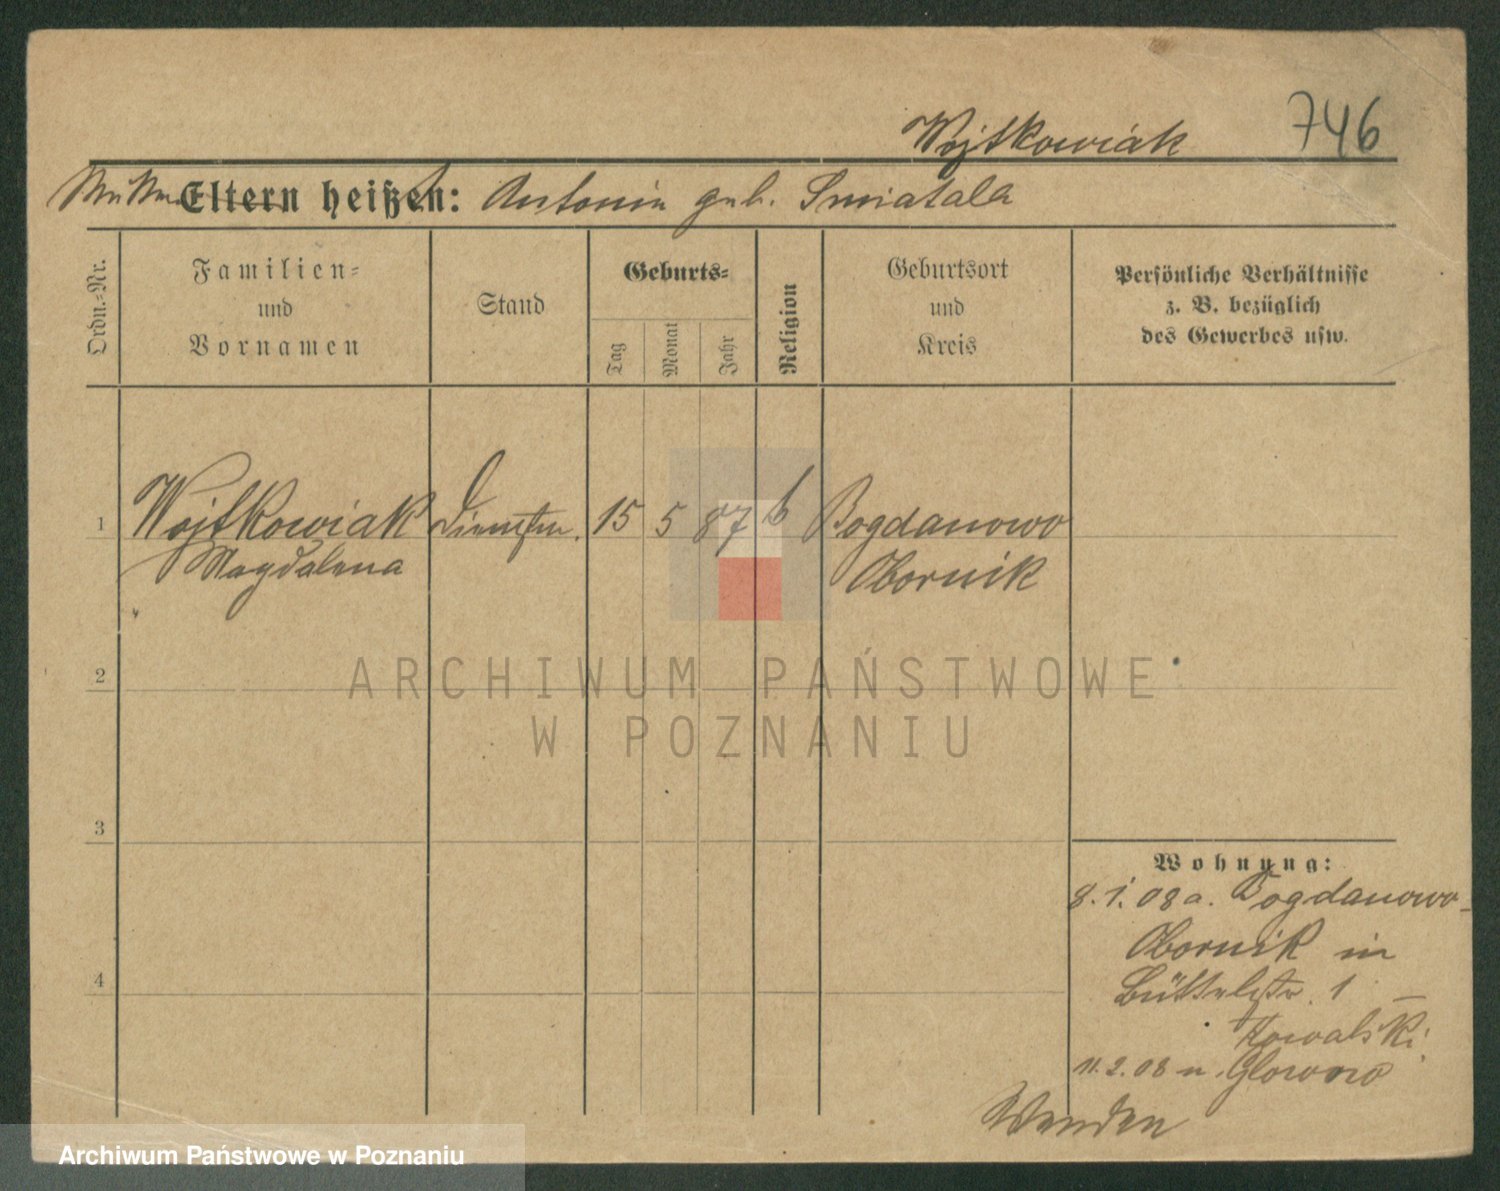 Wojtkowiak 746
Mutter Eltern heißen: Antonin geb. Smiatala
Ordn.-Nr.
Familien-
und
Vornamen
Stand
Geburts-
Tag
Monat
Jahr
Religion
Geburtsort
und
Kreis
Persönliche Verhältnisse
z. B. bezüglich
des Gewerbes usw.
1 Wojtkowiak 15 5 87 Bogdanowo
Magdalena Obornik
2
3
4
Wohnung:
8. 1. 08 a. Bogdanowo-
Obornik in
Büttelstr. 1
Kowalski
11. 2. 08 n. Glowno
Wenden
ARCHIWUM PAŃSTWOWE
W POZNANIU
Archiwum Państwowe w Poznaniu